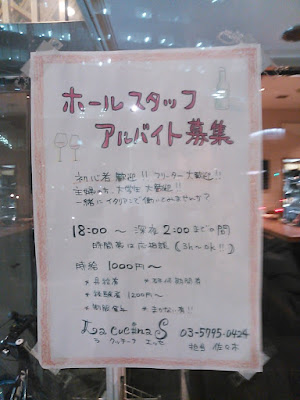 ホールスタッフ
アルバイト募集
初心者 歓迎!! フリーター 大歓迎!!
主婦の方、大学生 大歓迎!!
一緒にイタリアンで働いてみませんか?
18:00 ～ 深夜 2:00までの間
時間帯は応相談 (3h～ok!!)
時給 1000円～
* 昇給有
* 研修期間有
* 経験者 1200円～
* 制服貸与
* まかない有!!
La cucina S
ラ クッチーナ エッセ
03-5795-0424
担当 佐々木